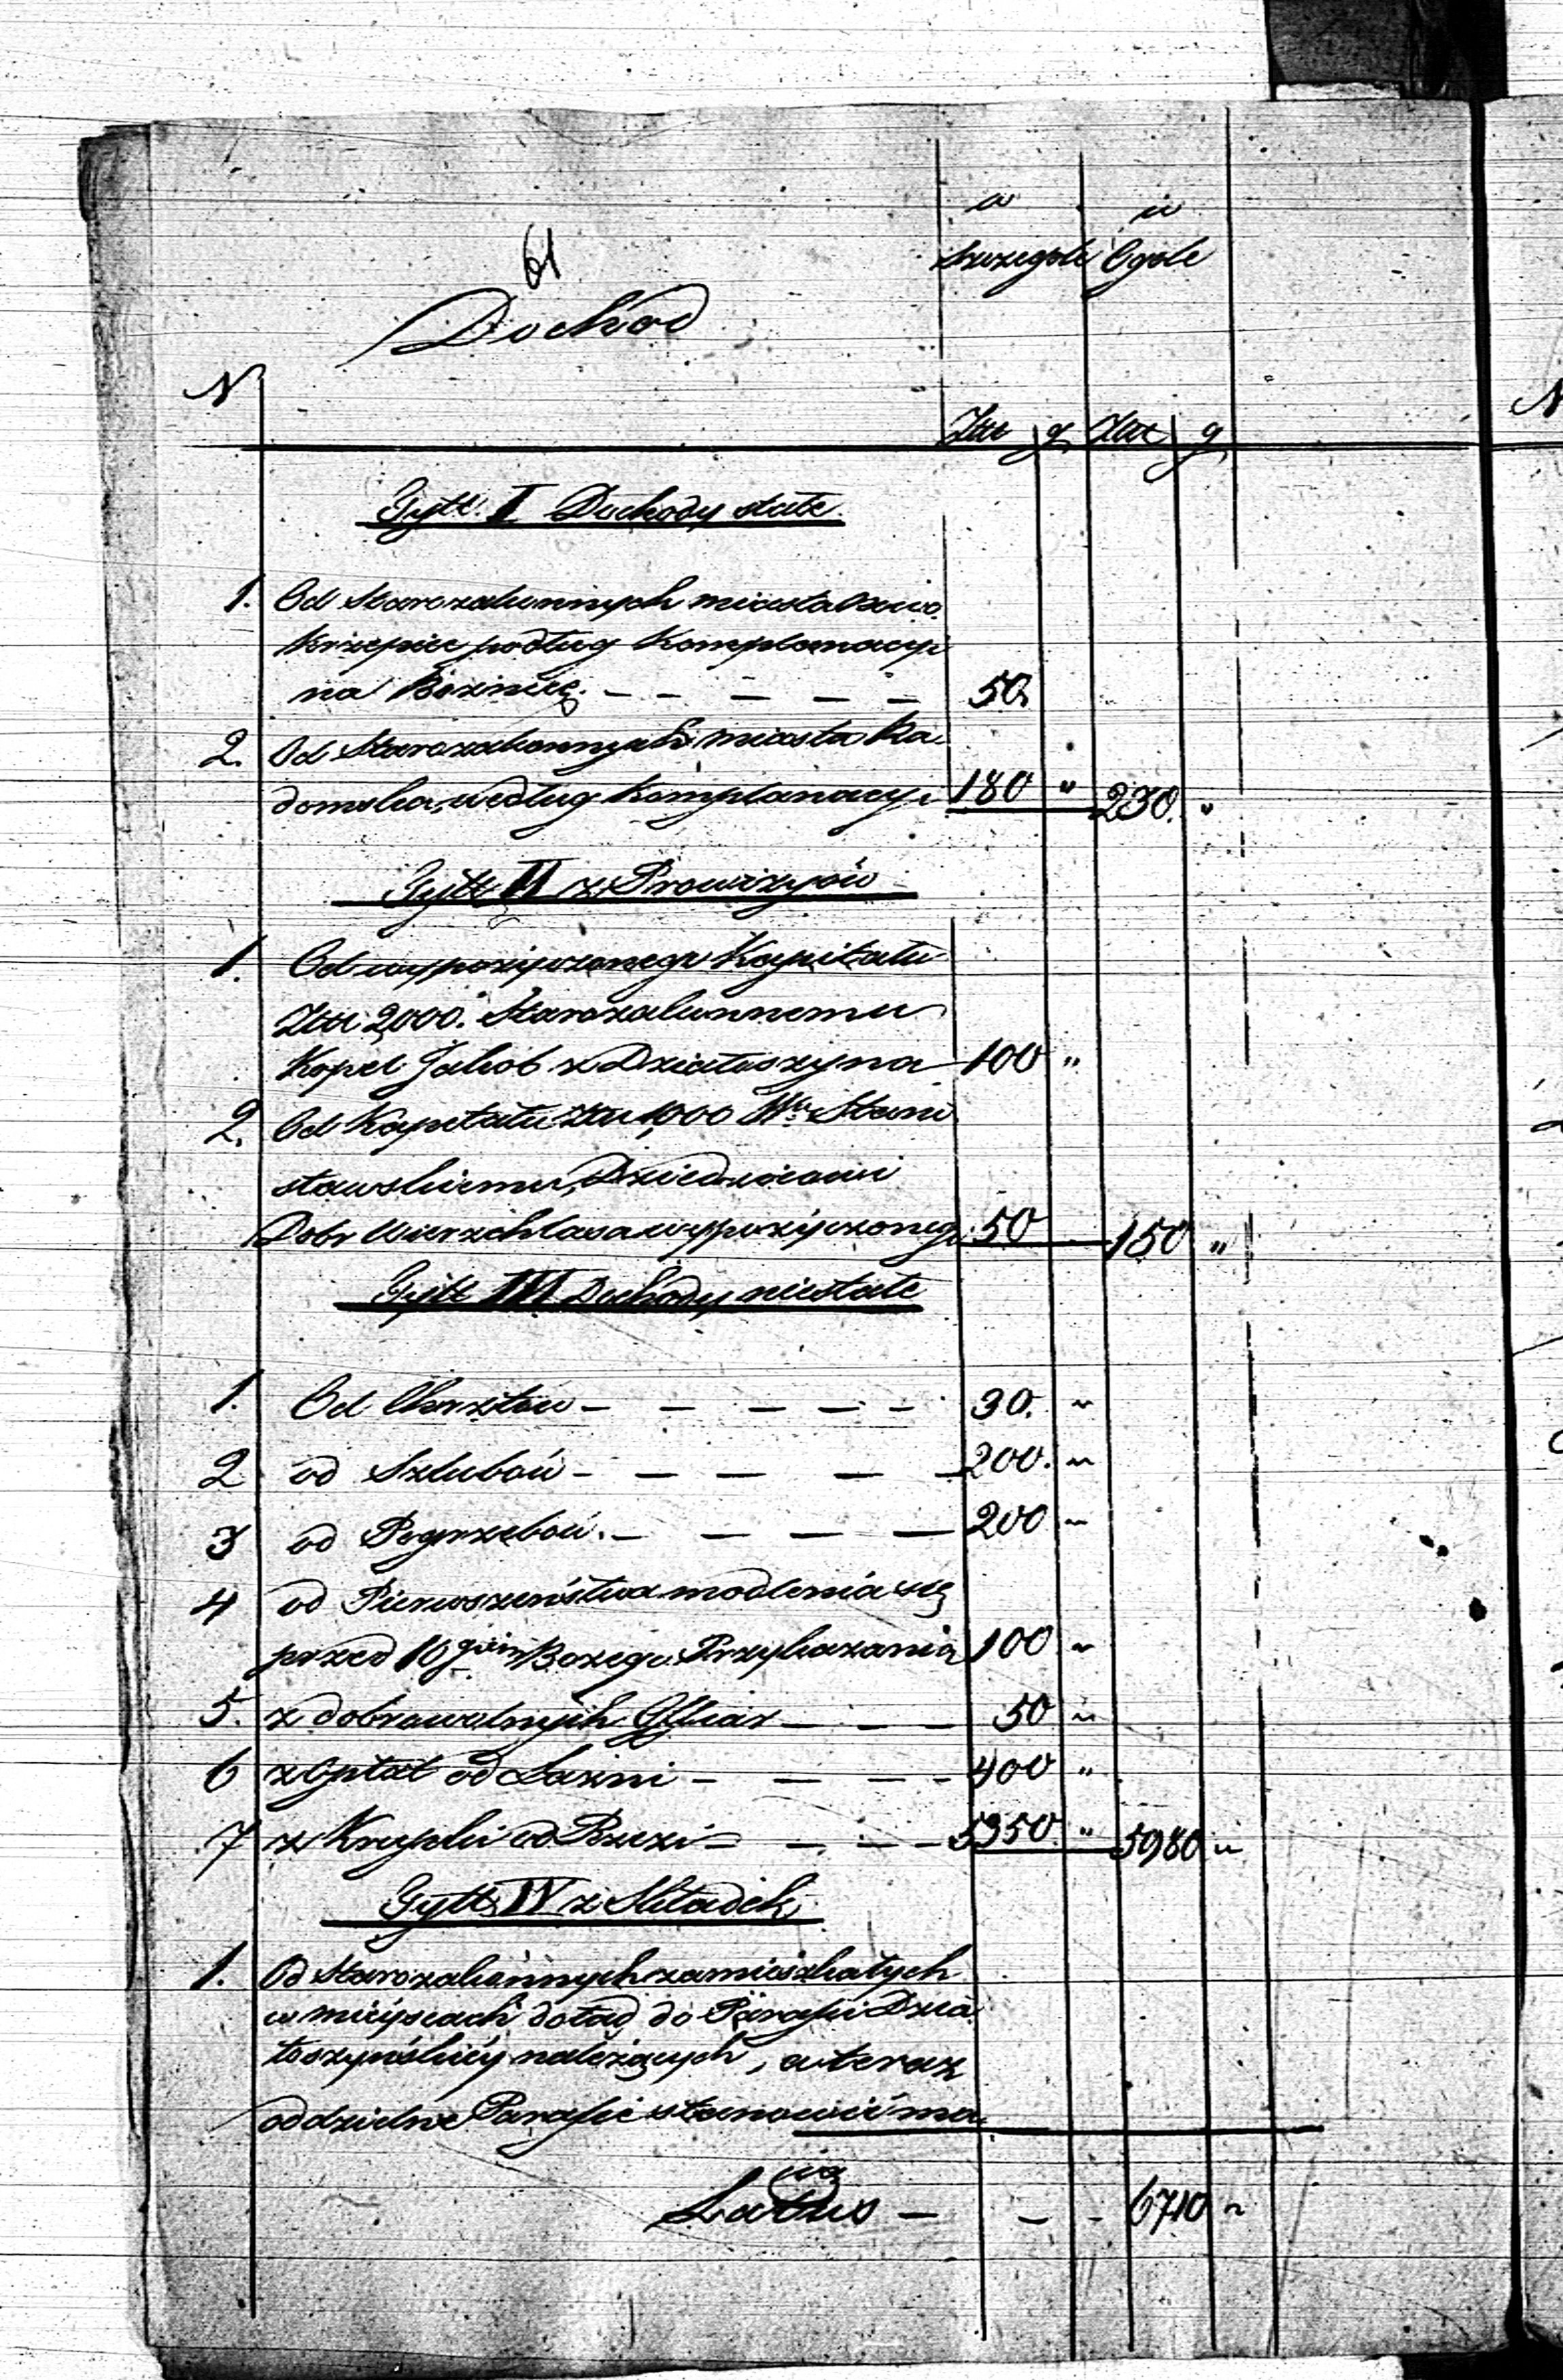 w w
Szczegole Ogole
61
Dochod
N
Złtt g Złtt g
Tytt. I Dochody stałe
1. Od Starozakonnych miasta
Krzepic podług Komplanacyi
na Boznicę. — — — — — 50
2. Od Starozakonnych miasta Ra-
domska, według Komplanacyi 180 " 230. "
Tytt II z Prowizyów
1. Od wypożyczonego Kapitału
Złtt 2000. Starozakonnemu
Kopel Jakob z Działoszyna 100 "
2. Od Kapitału Złtt 1000 Stani
sławskiemu, Dziedzicowi
Dobr Wierzchlasa wypożyczonego 50 150 "
Tytt III Dochody niestałe
1. Od Chrztów — — — — — 30. "
2 od Szlubów — — — — — 200. "
3 od Pogrzebów. — — — — 200 "
4 od Pierwszeństwa modlenia się
przed 10giem Bozego Przykazania 100 "
5. z dobrowolnych Ofiar — — — 50 "
6 z Opłat od Łazni — — — — 400 "
7 z Krupki od Rzezi — — — 5350. " 5980 "
Tytt IV z Składek
1. Od Starozakonnych zamieszkałych
w mieyscach dotąd do Parafii Dzia-
łoszyńskiéy należących, a teraz
oddzielne Parafie stanowić ma-
ią
Latus — — - 6710 "
N